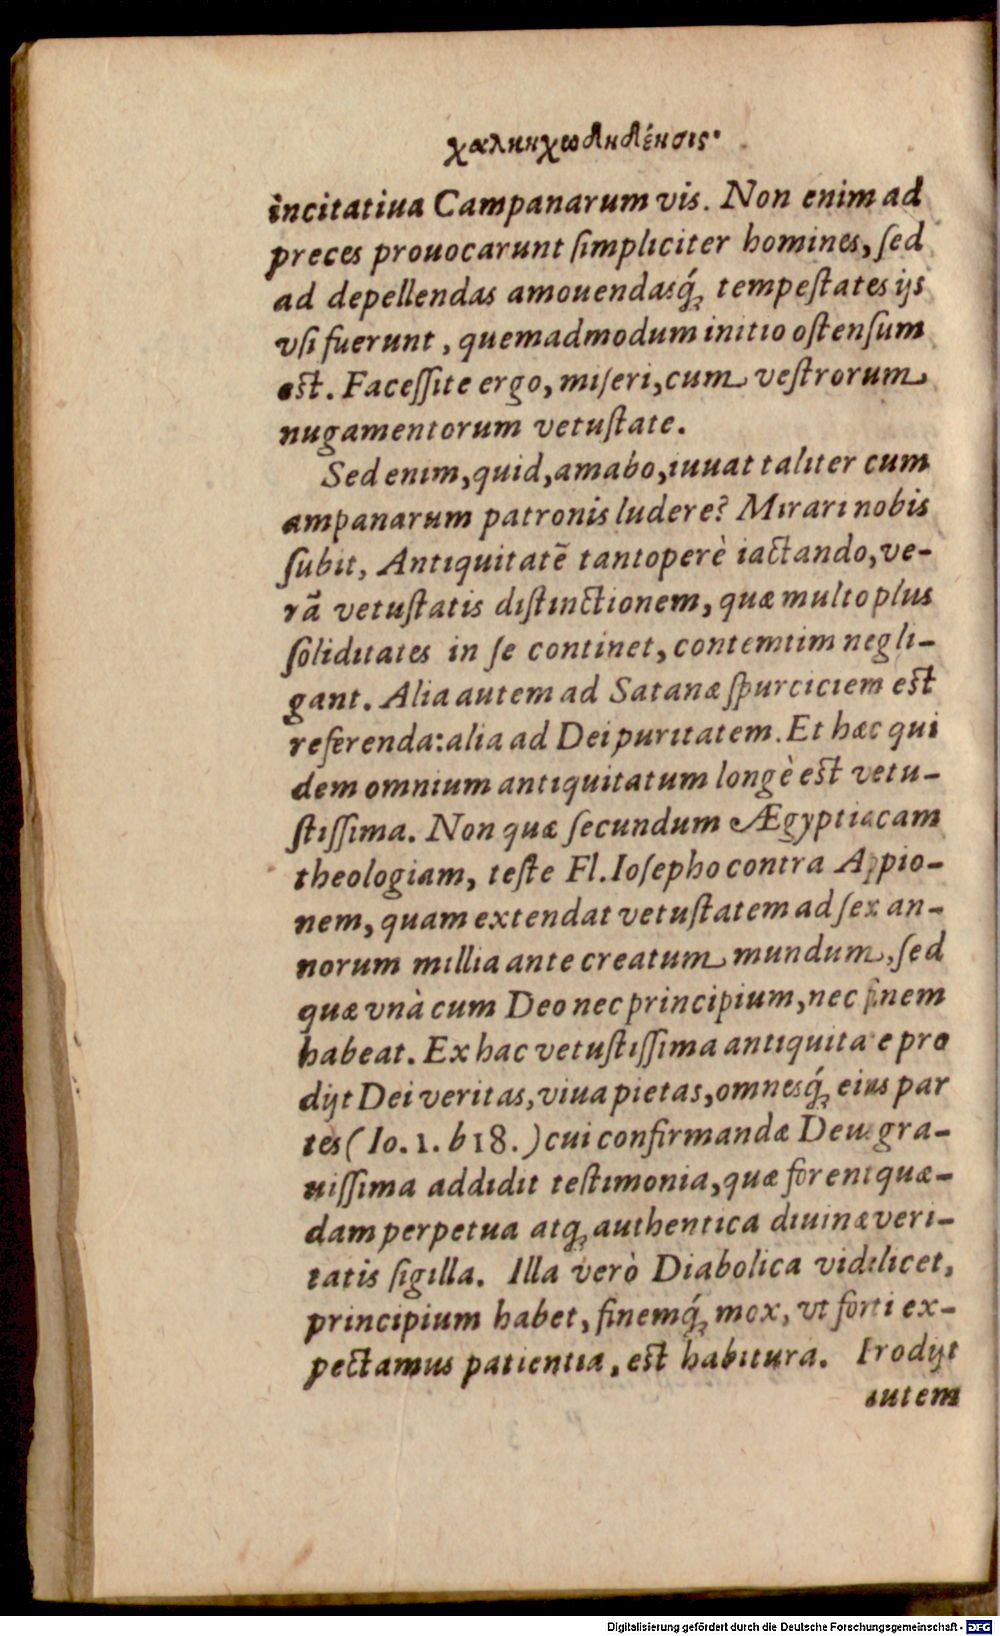 χαληηχωδηδέησις.
incitatiua Campanarum vis. Non enim ad
preces prouocarunt ſimpliciter homines, ſed
ad depellendas amouendasq́; tempeſtates ijs
vſi fuerunt, quemadmodum initio oſtenſum
eſt. Faceſſite ergo, miſeri, cum veſtrorum
nugamentorum vetuſtate.
Sed enim, quid, amabo, iuuat taliter cum
ampanarum patronis ludere? Mirari nobis
ſubit, Antiquitatẽ tantoperè iactando, ve-
rã vetuſtatis diſtinctionem, quæ multo plus
ſoliditates in ſe continet, contemtim negli-
gant. Alia autem ad Satanæ ſpurciciem eſt
referenda: alia ad Dei puritatem. Et hæc qui
dem omnium antiquitatum longè eſt vetu-
ſtiſſima. Non quæ ſecundum Ægyptiacam
theologiam, teſte Fl. Ioſepho contra Appio-
nem, quam extendat vetuſtatem ad ſex an-
norum millia ante creatum mundum, ſed
quæ vnà cum Deo nec principium, nec finem
habeat. Ex hac vetuſtiſſima antiquitate pro
dijt Dei veritas, viua pietas, omnesq́; eius par
tes (Io. 1. b 18.) cui confirmandæ Deus gra-
uiſſima addidit teſtimonia, quæ forent quæ-
dam perpetua atq; authentica diuinæ veri-
tatis ſigilla. Illa verò Diabolica videlicet,
principium habet, finemq́; mox, vt forti ex-
pectamus patientia, eſt habitura. Prodijt
autem
Digitalisierung gefördert durch die Deutsche Forschungsgemeinschaft - DFG